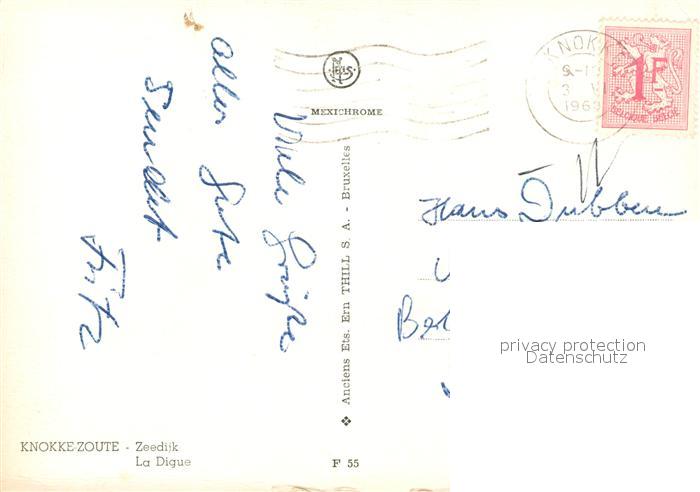 Viele Grüße
alles Gute
Sendet
Fritz
MEXICHROME
Anciens Ets. Ern THILL S. A. - Bruxelles
KNOKKE-ZOUTE - Zeedijk
La Digue
F 55
KNOKKE
1963
1F
BELGIQUE-BELGIË
Hans Dubben
privacy protection
Datenschutz